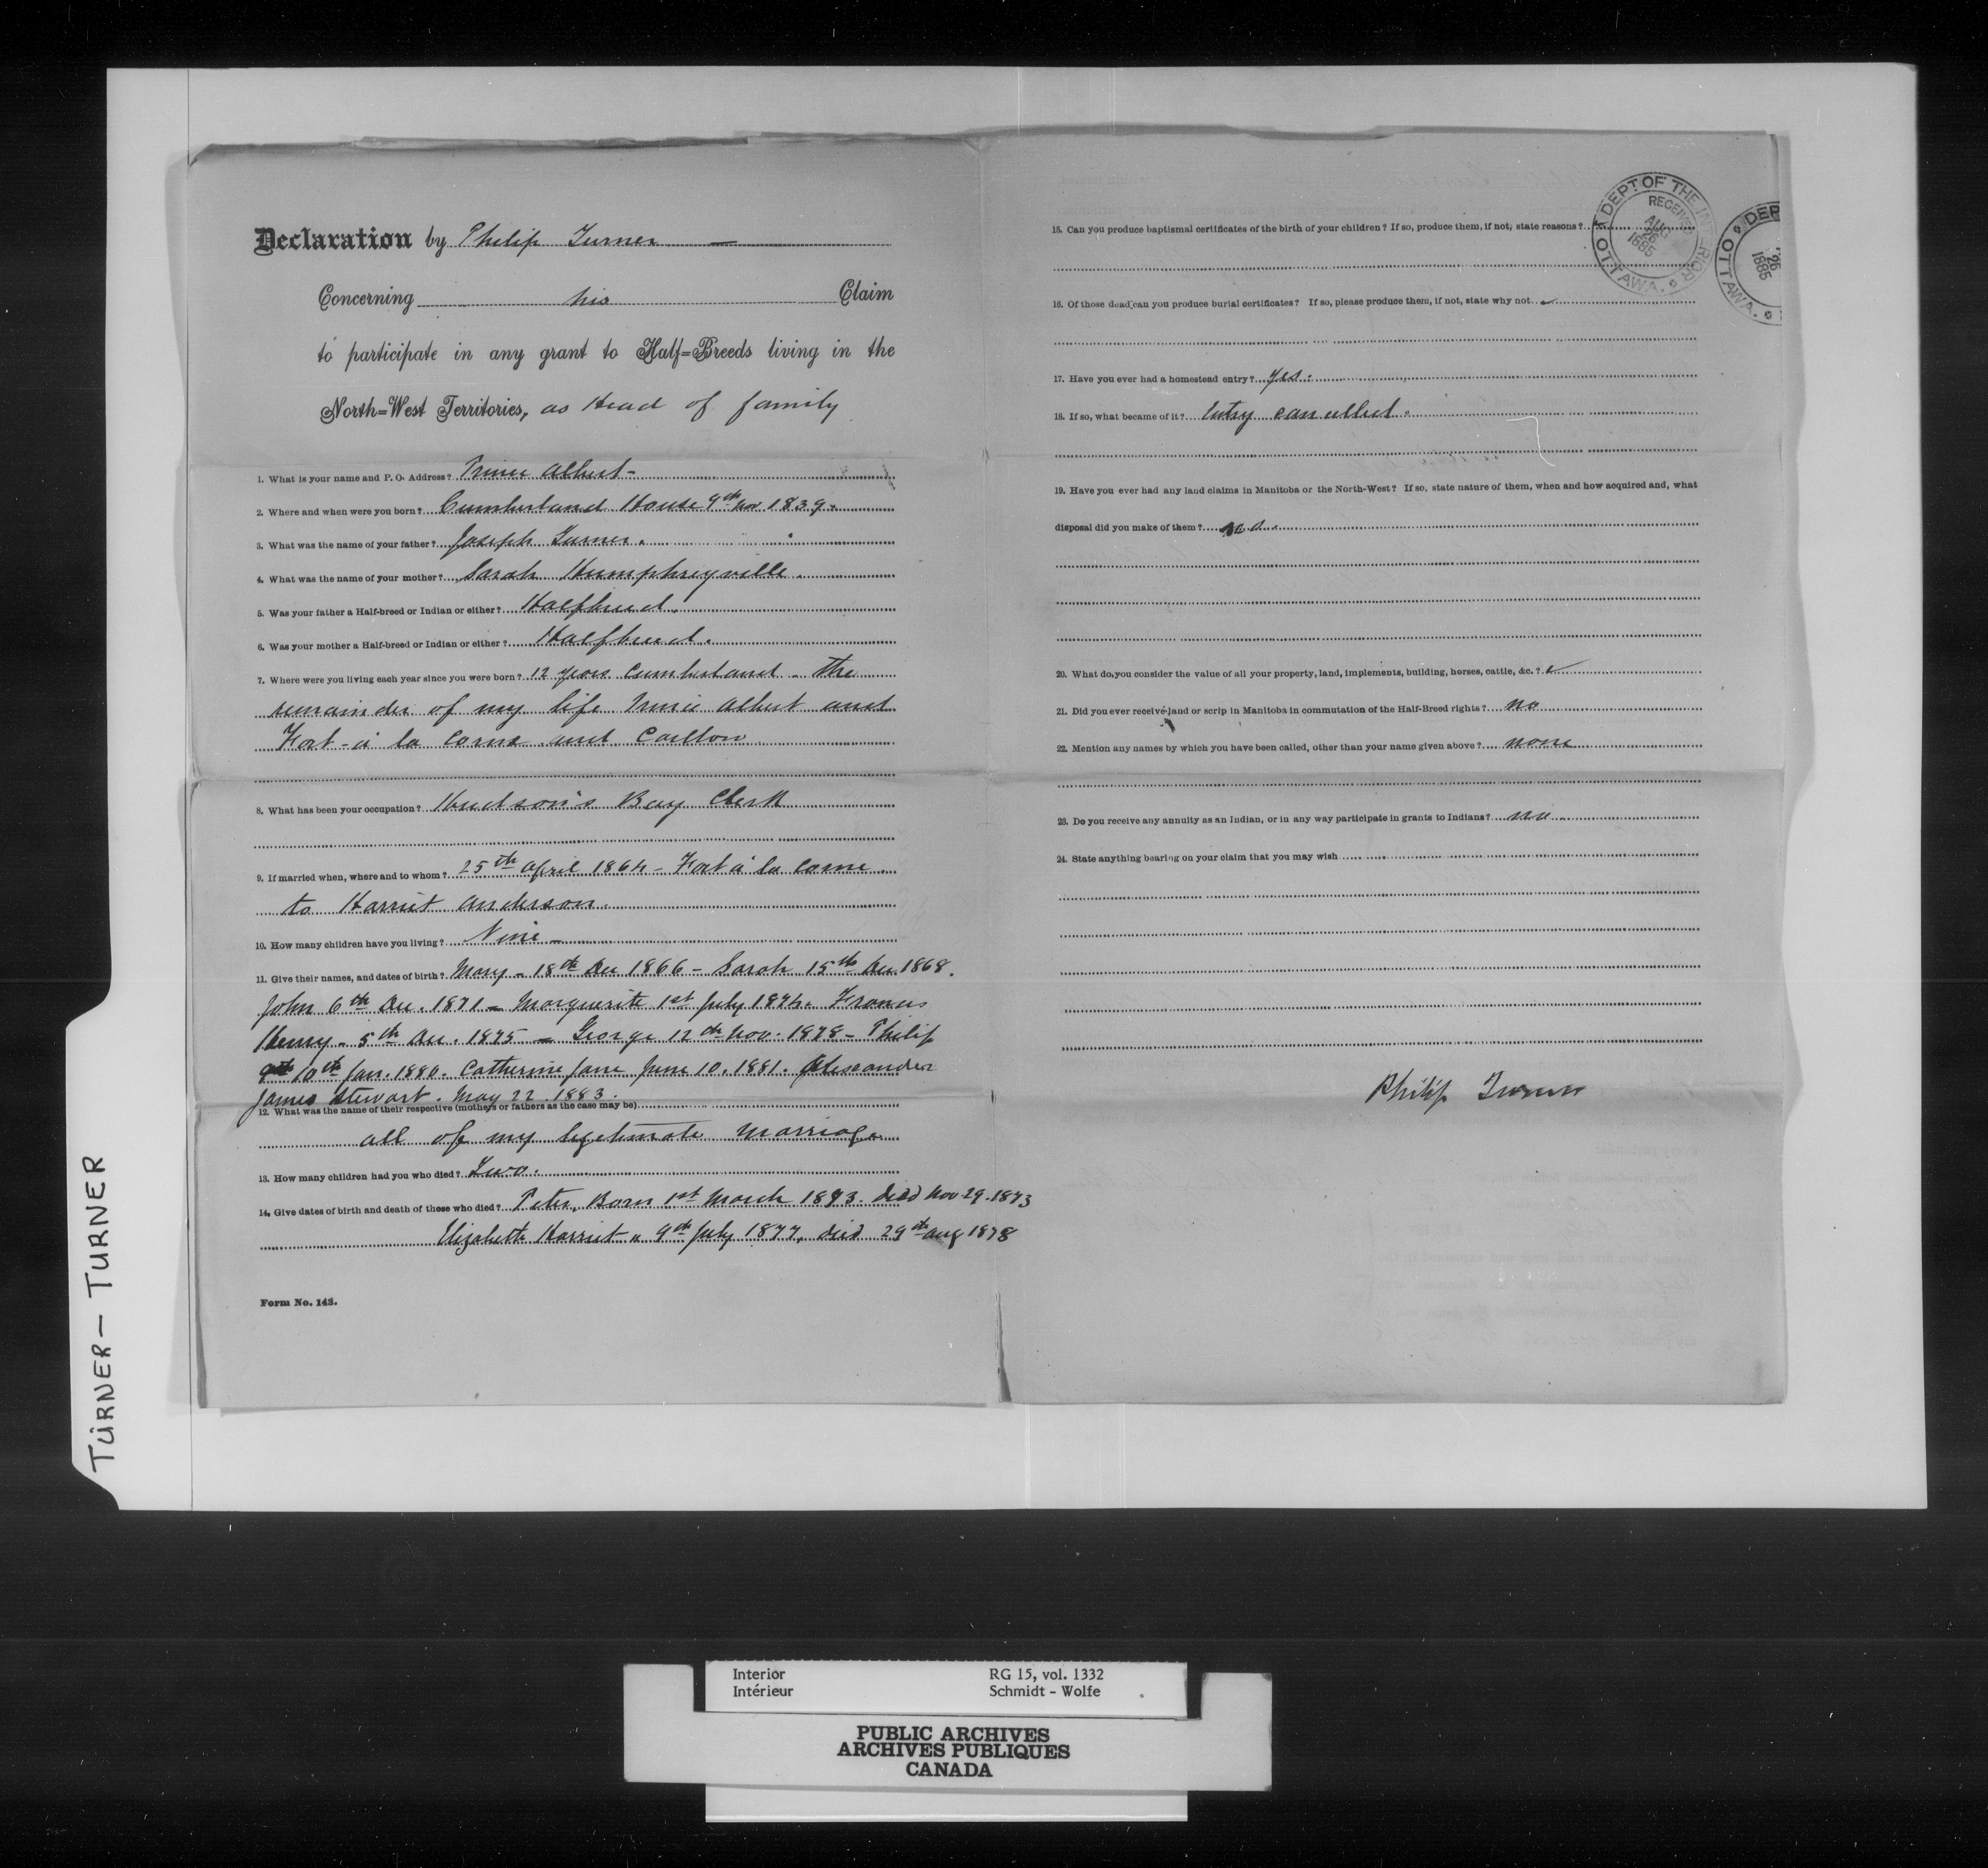 Declaration by Philip Turner —
Concerning his Claim
to participate in any grant to Half-Breeds living in the
North-West Territories, as Head of family
1. What is your name and P. O. Address? Prince Albert -
2. Where and when were you born? Cumberland House 9th Nov 1839.
3. What was the name of your father? Joseph Turner.
4. What was the name of your mother? Sarah Humphreyville.
5. Was your father a Half-breed or Indian or either? Halfbreed.
6. Was your mother a Half-breed or Indian or either? Halfbreed.
7. Where were you living each year since you were born? 12 years Cumberland. The
remainder of my life Prince Albert and
Fort-à la Corne and Carlton
8. What has been your occupation? Hudson's Bay Clerk
9. If married when, where and to whom? 25th April 1864 - Fort à la Corne
to Harriet Anderson.
10. How many children have you living? Nine -
11. Give their names, and dates of birth? Mary - 18th Dec 1866 - Sarah 15th Dec. 1868.
John 6th Dec. 1871 - Marguerite 1st July 1874. Francis
Henry - 5th Dec. 1875 - George 12th Nov. 1878 - Philip
10th Jan. 1880. Catherine Jane June 10. 1881. Alexander
James Stewart. May 22. 1883.
12. What was the name of their respective (mothers or fathers as the case may be)
all of my legitimate marriage
13. How many children had you who died? Two.
14. Give dates of birth and death of those who died? Peter, Born 1st March 1873. died Nov 29. 1873
Elizabeth Harriet " 9th July 1877, died 29th Aug 1878
Form No. 143.
15. Can you produce baptismal certificates of the birth of your children? If so, produce them, if not, state reasons?
16. Of those dead can you produce burial certificates? If so, please produce them, if not, state why not
17. Have you ever had a homestead entry? Yes.
18. If so, what became of it? Entry cancelled.
19. Have you ever had any land claims in Manitoba or the North-West? If so, state nature of them, when and how acquired and, what
disposal did you make of them? no.
20. What do you consider the value of all your property, land, implements, building, horses, cattle, &c.?
21. Did you ever receive land or scrip in Manitoba in commutation of the Half-Breed rights? no
22. Mention any names by which you have been called, other than your name given above? none
23. Do you receive any annuity as an Indian, or in any way participate in grants to Indians? no.
24. State anything bearing on your claim that you may wish
Philip Turner
DEPT OF THE INTERIOR
RECEIVED
AUG
26
1885
OTTAWA.
DEP
26
1885
OTTAWA.
TURNER - TURNER
Interior RG 15, vol. 1332
Intérieur Schmidt - Wolfe
PUBLIC ARCHIVES
ARCHIVES PUBLIQUES
CANADA